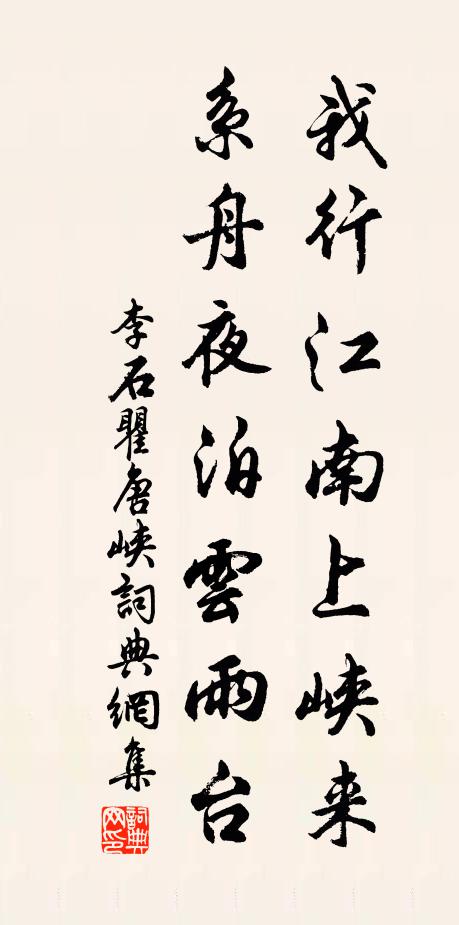 我行江南上峡来
系舟夜泊雲雨台
李石瞿唐峡詞典網集
詞典网印